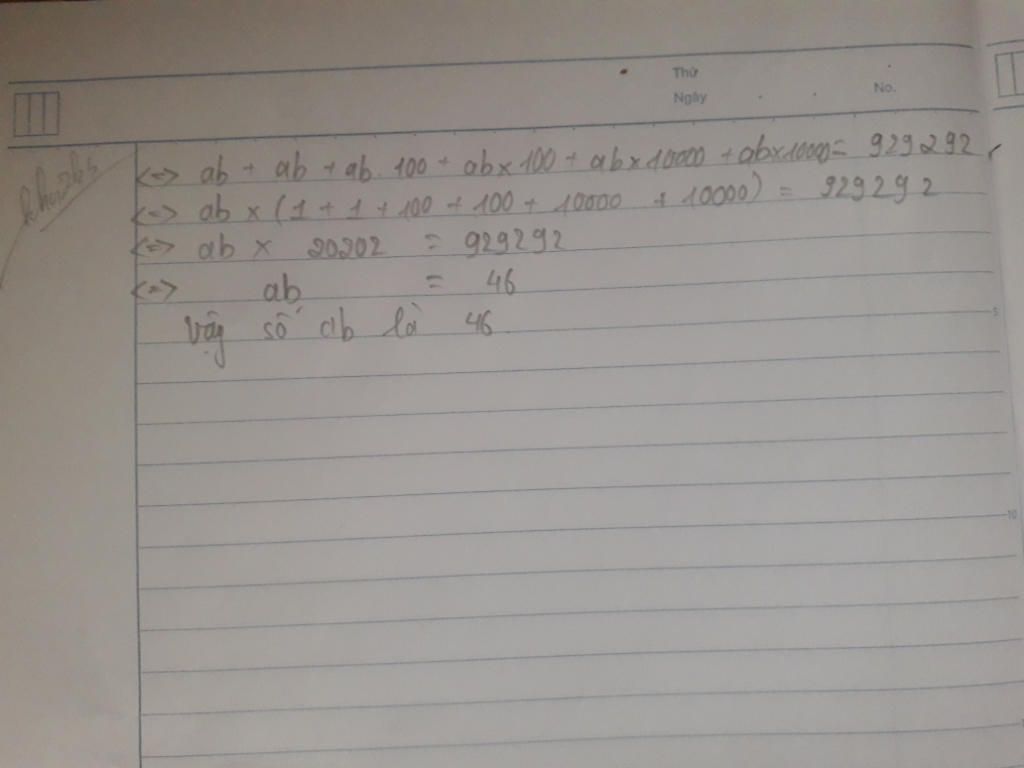 Thứ
Ngày
No.
<=> ab + ab + ab . 100 + ab x 100 + ab x 10000 + ab x 10000 = 929292
<=> ab x (1 + 1 + 100 + 100 + 10000 + 10000) = 929292
<=> ab x 20202 = 929292
<=> ab = 46
Vậy số ab là 46
5
10